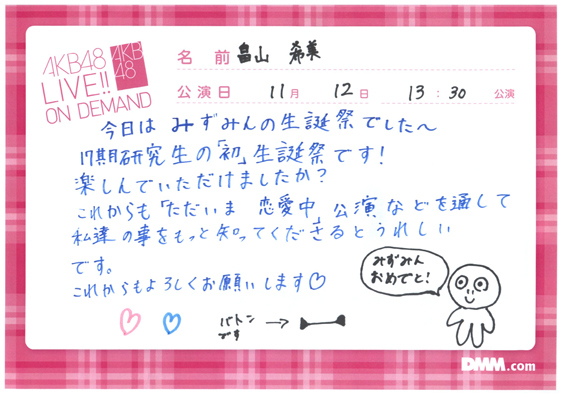 AKB48
LIVE!!
ON DEMAND
AKB
48
名 前 畠山 希美
公演日 11月 12日 13:30 公演
今日は みずみんの生誕祭でした〜
17期研究生の「初」生誕祭です!
楽しんでいただけましたか?
これからも「ただいま 恋愛中」公演などを通して
私達の事をもっと知ってくださるとうれしい
です。
これからもよろしくお願いします♡
みずみん
おめでと!
バトン
です
→
DMM.com